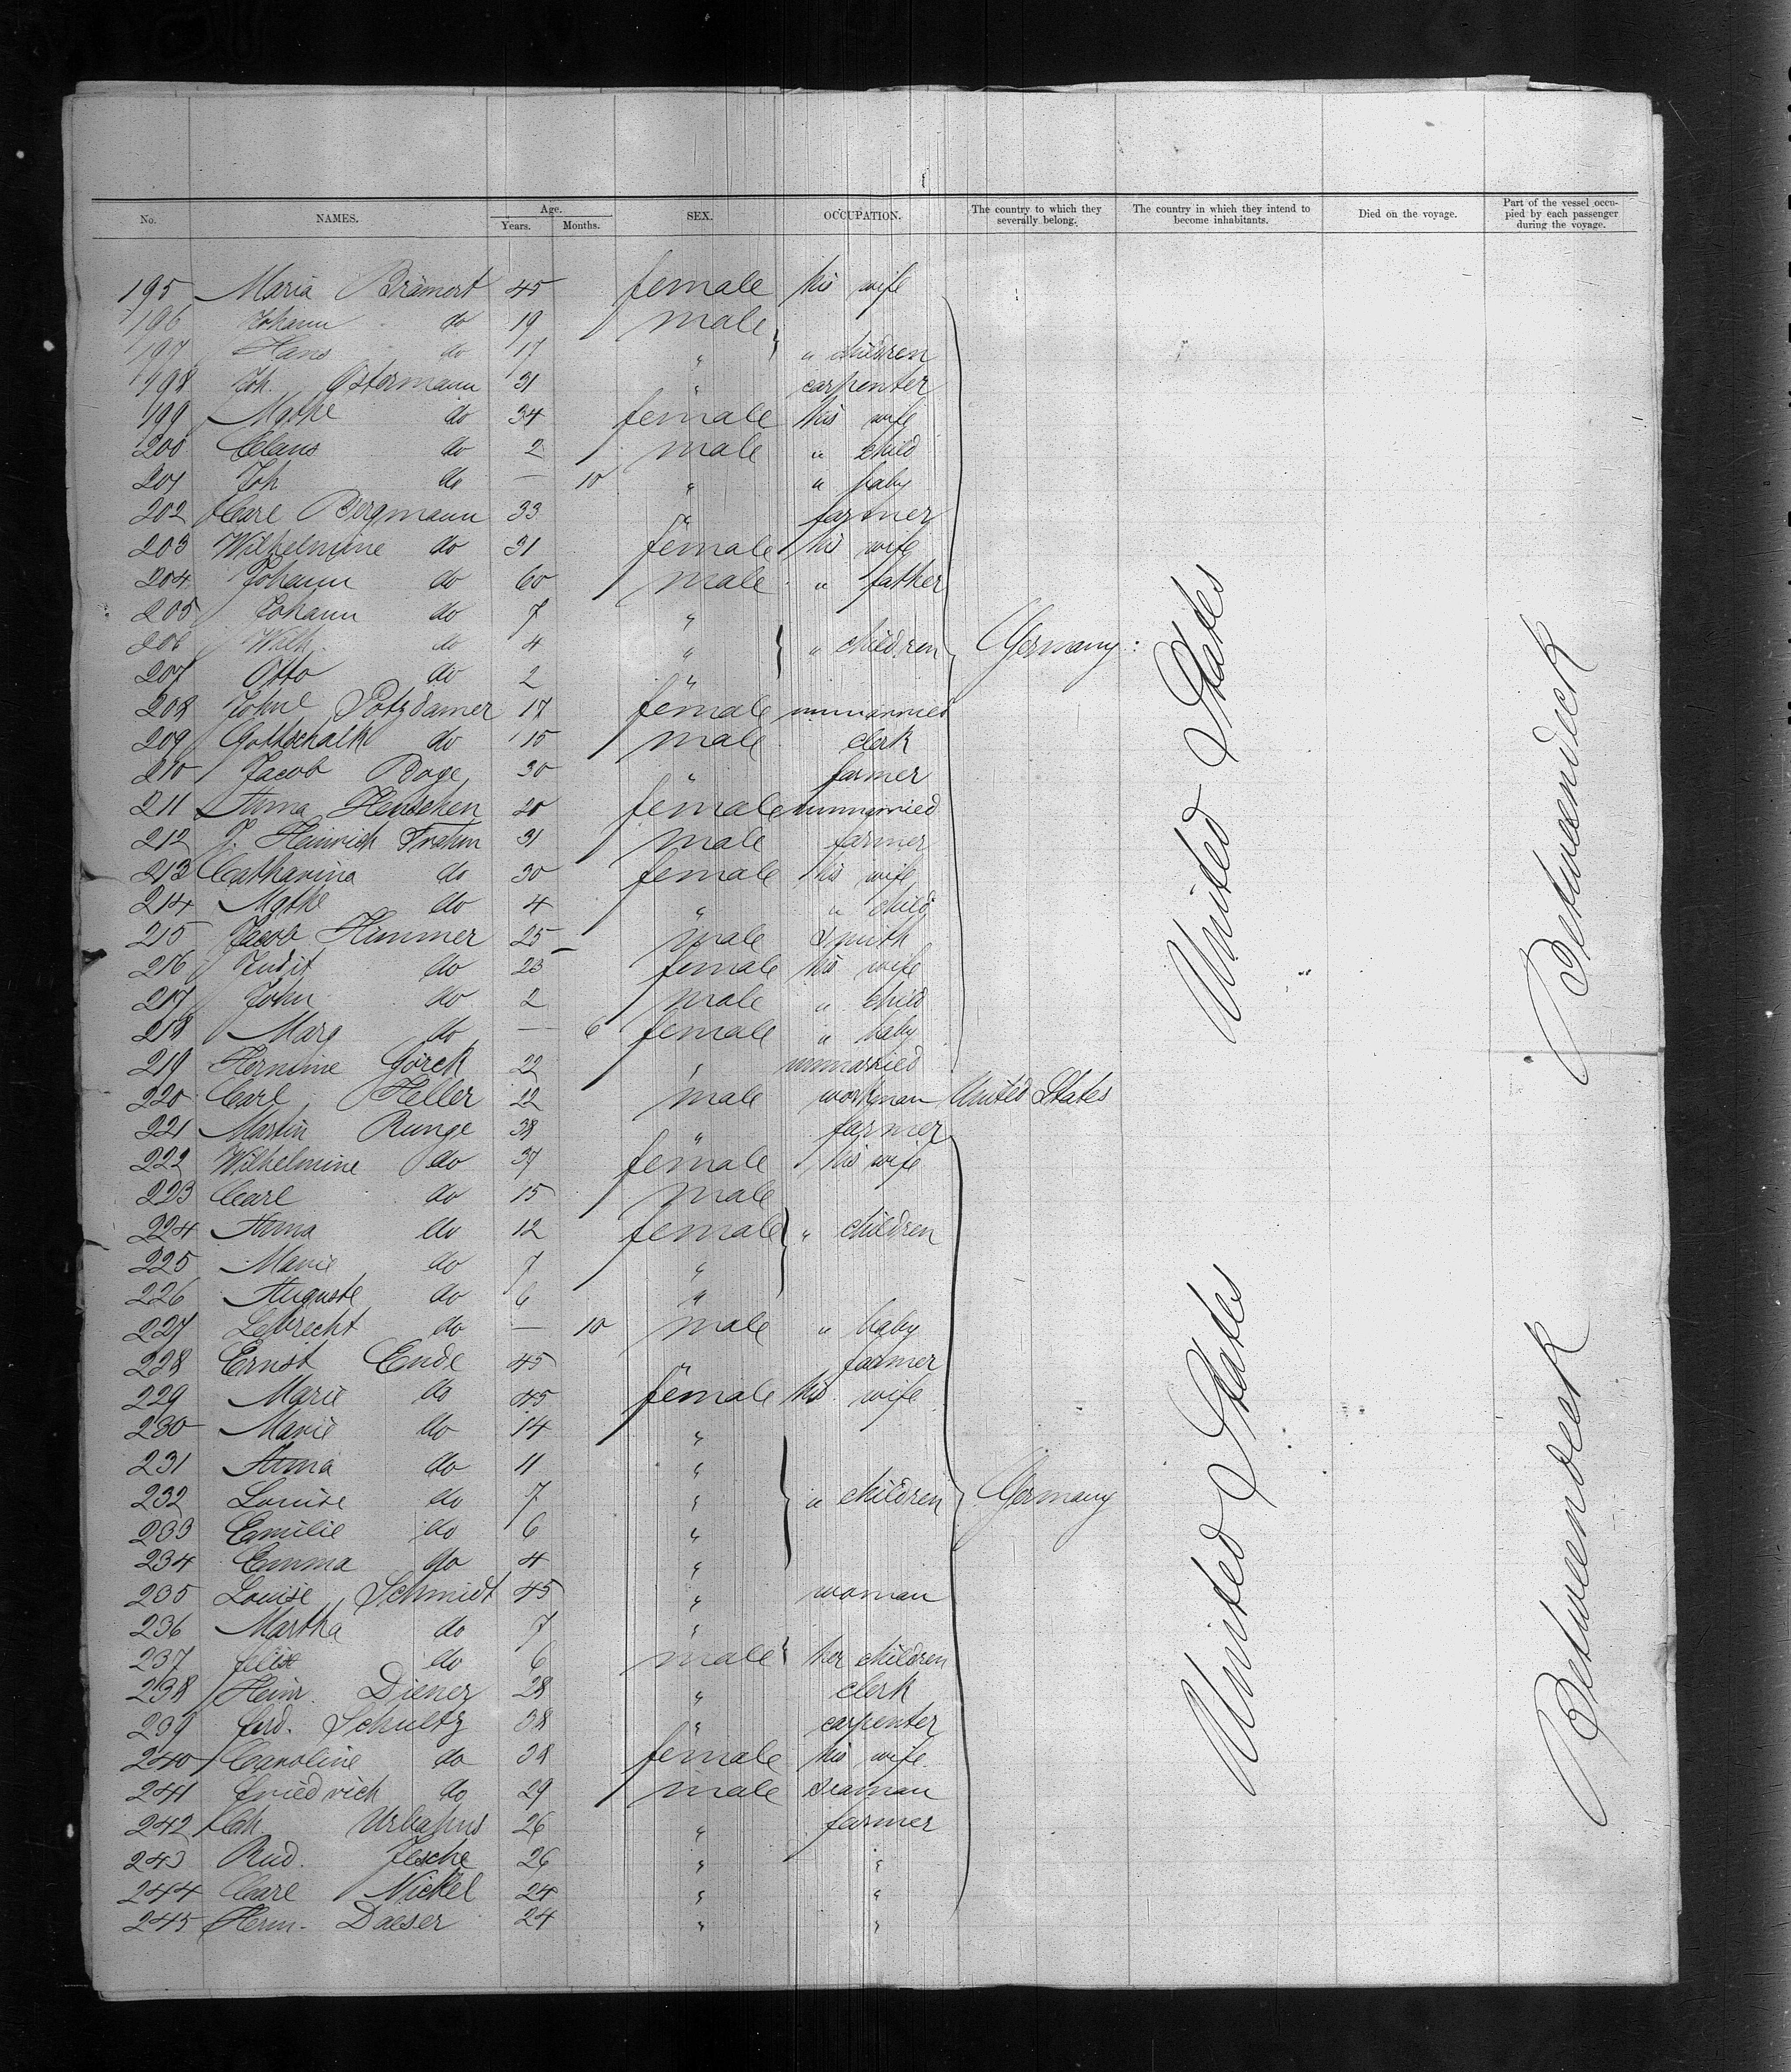 No. NAMES. Age. Years. Months. SEX. OCCUPATION. The country to which they severally belong. The country in which they intend to become inhabitants. Died on the voyage. Part of the vessel occupied by each passenger during the voyage.
195 Maria Brämort 45 female his wife
196 Johann do 19 male
197 Hans do 17 " " children
198 Joh. Ostermann 31 " carpenter
199 do 34 female his wife
200 Claus do 2 male " child
201 Joh do — 10 " " baby
202 Carl Bergmann 33 " farmer
203 Wilhelmine do 31 female his wife
204 Johann do 60 male " father
205 Johann do 7 "
206 Wilh. do 4 " " children Germany:
207 Otto do 2 "
208 Potzdamer 17 female unmarried
209 Gottschalk do 15 male clerk
210 Jacob Boge 30 " farmer
211 Anna Hentschen 20 female unmarried
212 J. Heinrich Frahm 31 male farmer
213 Catharina do 30 female his wife
214 do 4 " " child
215 Jacob Himmer 25 male Smith
216 Judit do 23 female his wife
217 John do 2 male " child
218 Marg do — 6 female " baby
219 Hermine Görck 22 " unmarried
220 Carl Heller 22 male workman United States
221 Martin Runge 38 " farmer
222 Wilhelmine do 37 female his wife
223 Carl do 15 male
224 Anna do 12 female " children
225 Marie do 7 "
226 Auguste do 6 "
227 Lebrecht do — 10 male " baby
228 Ernst Ende 45 " farmer
229 Marie do 45 female his wife
230 Marie do 14 "
231 Anna do 11 "
232 Louise do 7 " " children Germany
233 Emilie do 6 "
234 Emma do 4 "
235 Louise Schmidt 45 " woman
236 Martha do 7 "
237 Felix do 6 male her children
238 Heinr. Diener 28 " clerk
239 Ferd. Schultz 38 " carpenter
240 Caroline do 38 female his wife
241 Friedrich do 29 male Seaman
242 Ch. Urbahns 26 " farmer
243 Rud. Jesche 26 " "
244 Carl Nickel 24 " "
245 Herm. Daeser 24 " "
United States
United States
Betweendeck
Betweendeck